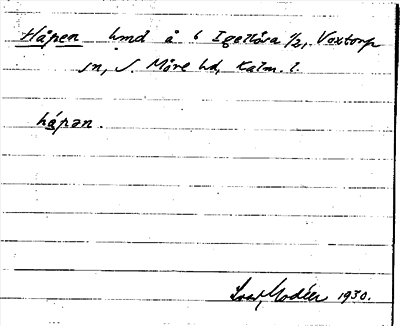 Håpen hmd å 6 Igelösa 1/2, Voxtorp
sn, S. Möre hd, Kalm. l.
håpən.
Ivar Modéer 1930.